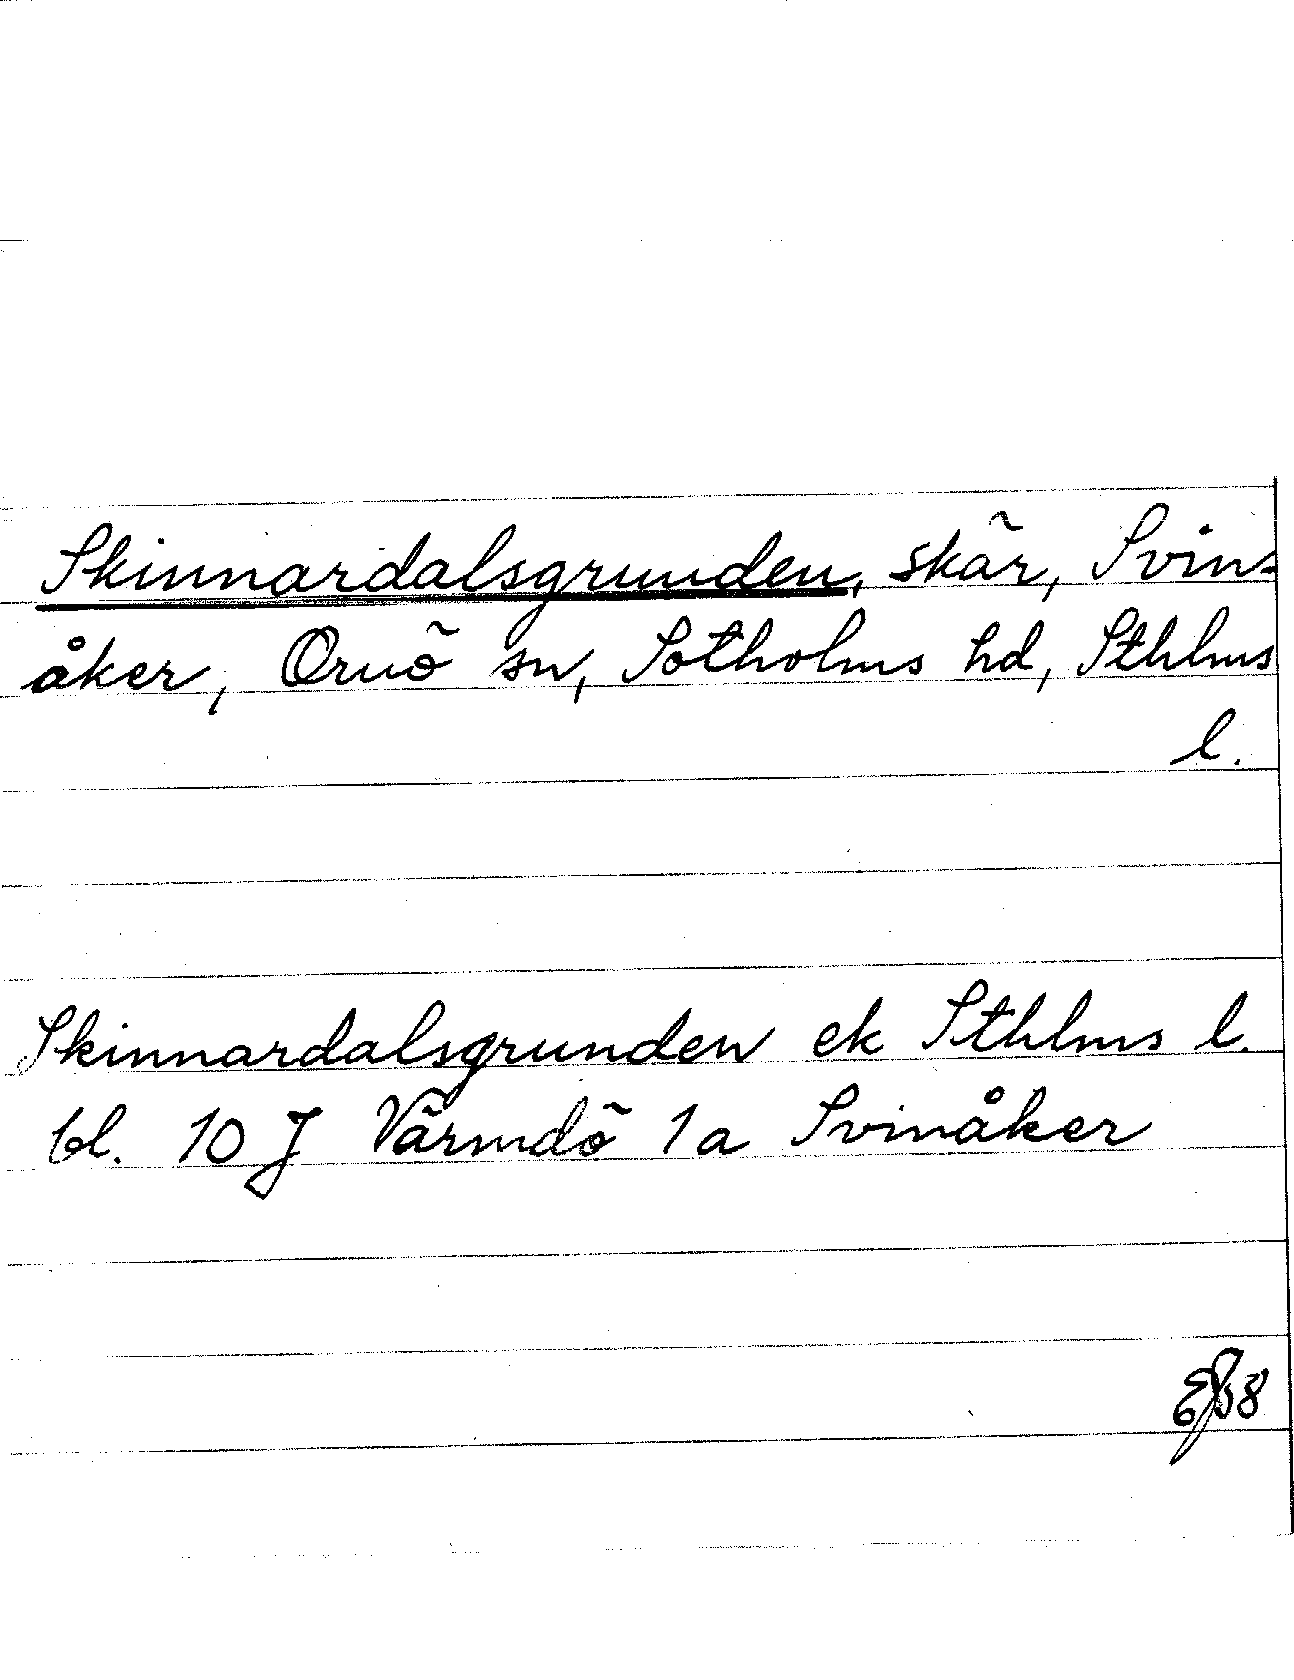 Skinnardalsgrunden, skär, Svin-
åker, Ornö sn, Sotholms hd, Sthlms
l.
Skinnardalsgrunden ek Sthlms l.
bl. 10 J Värmdö 1a Svinåker